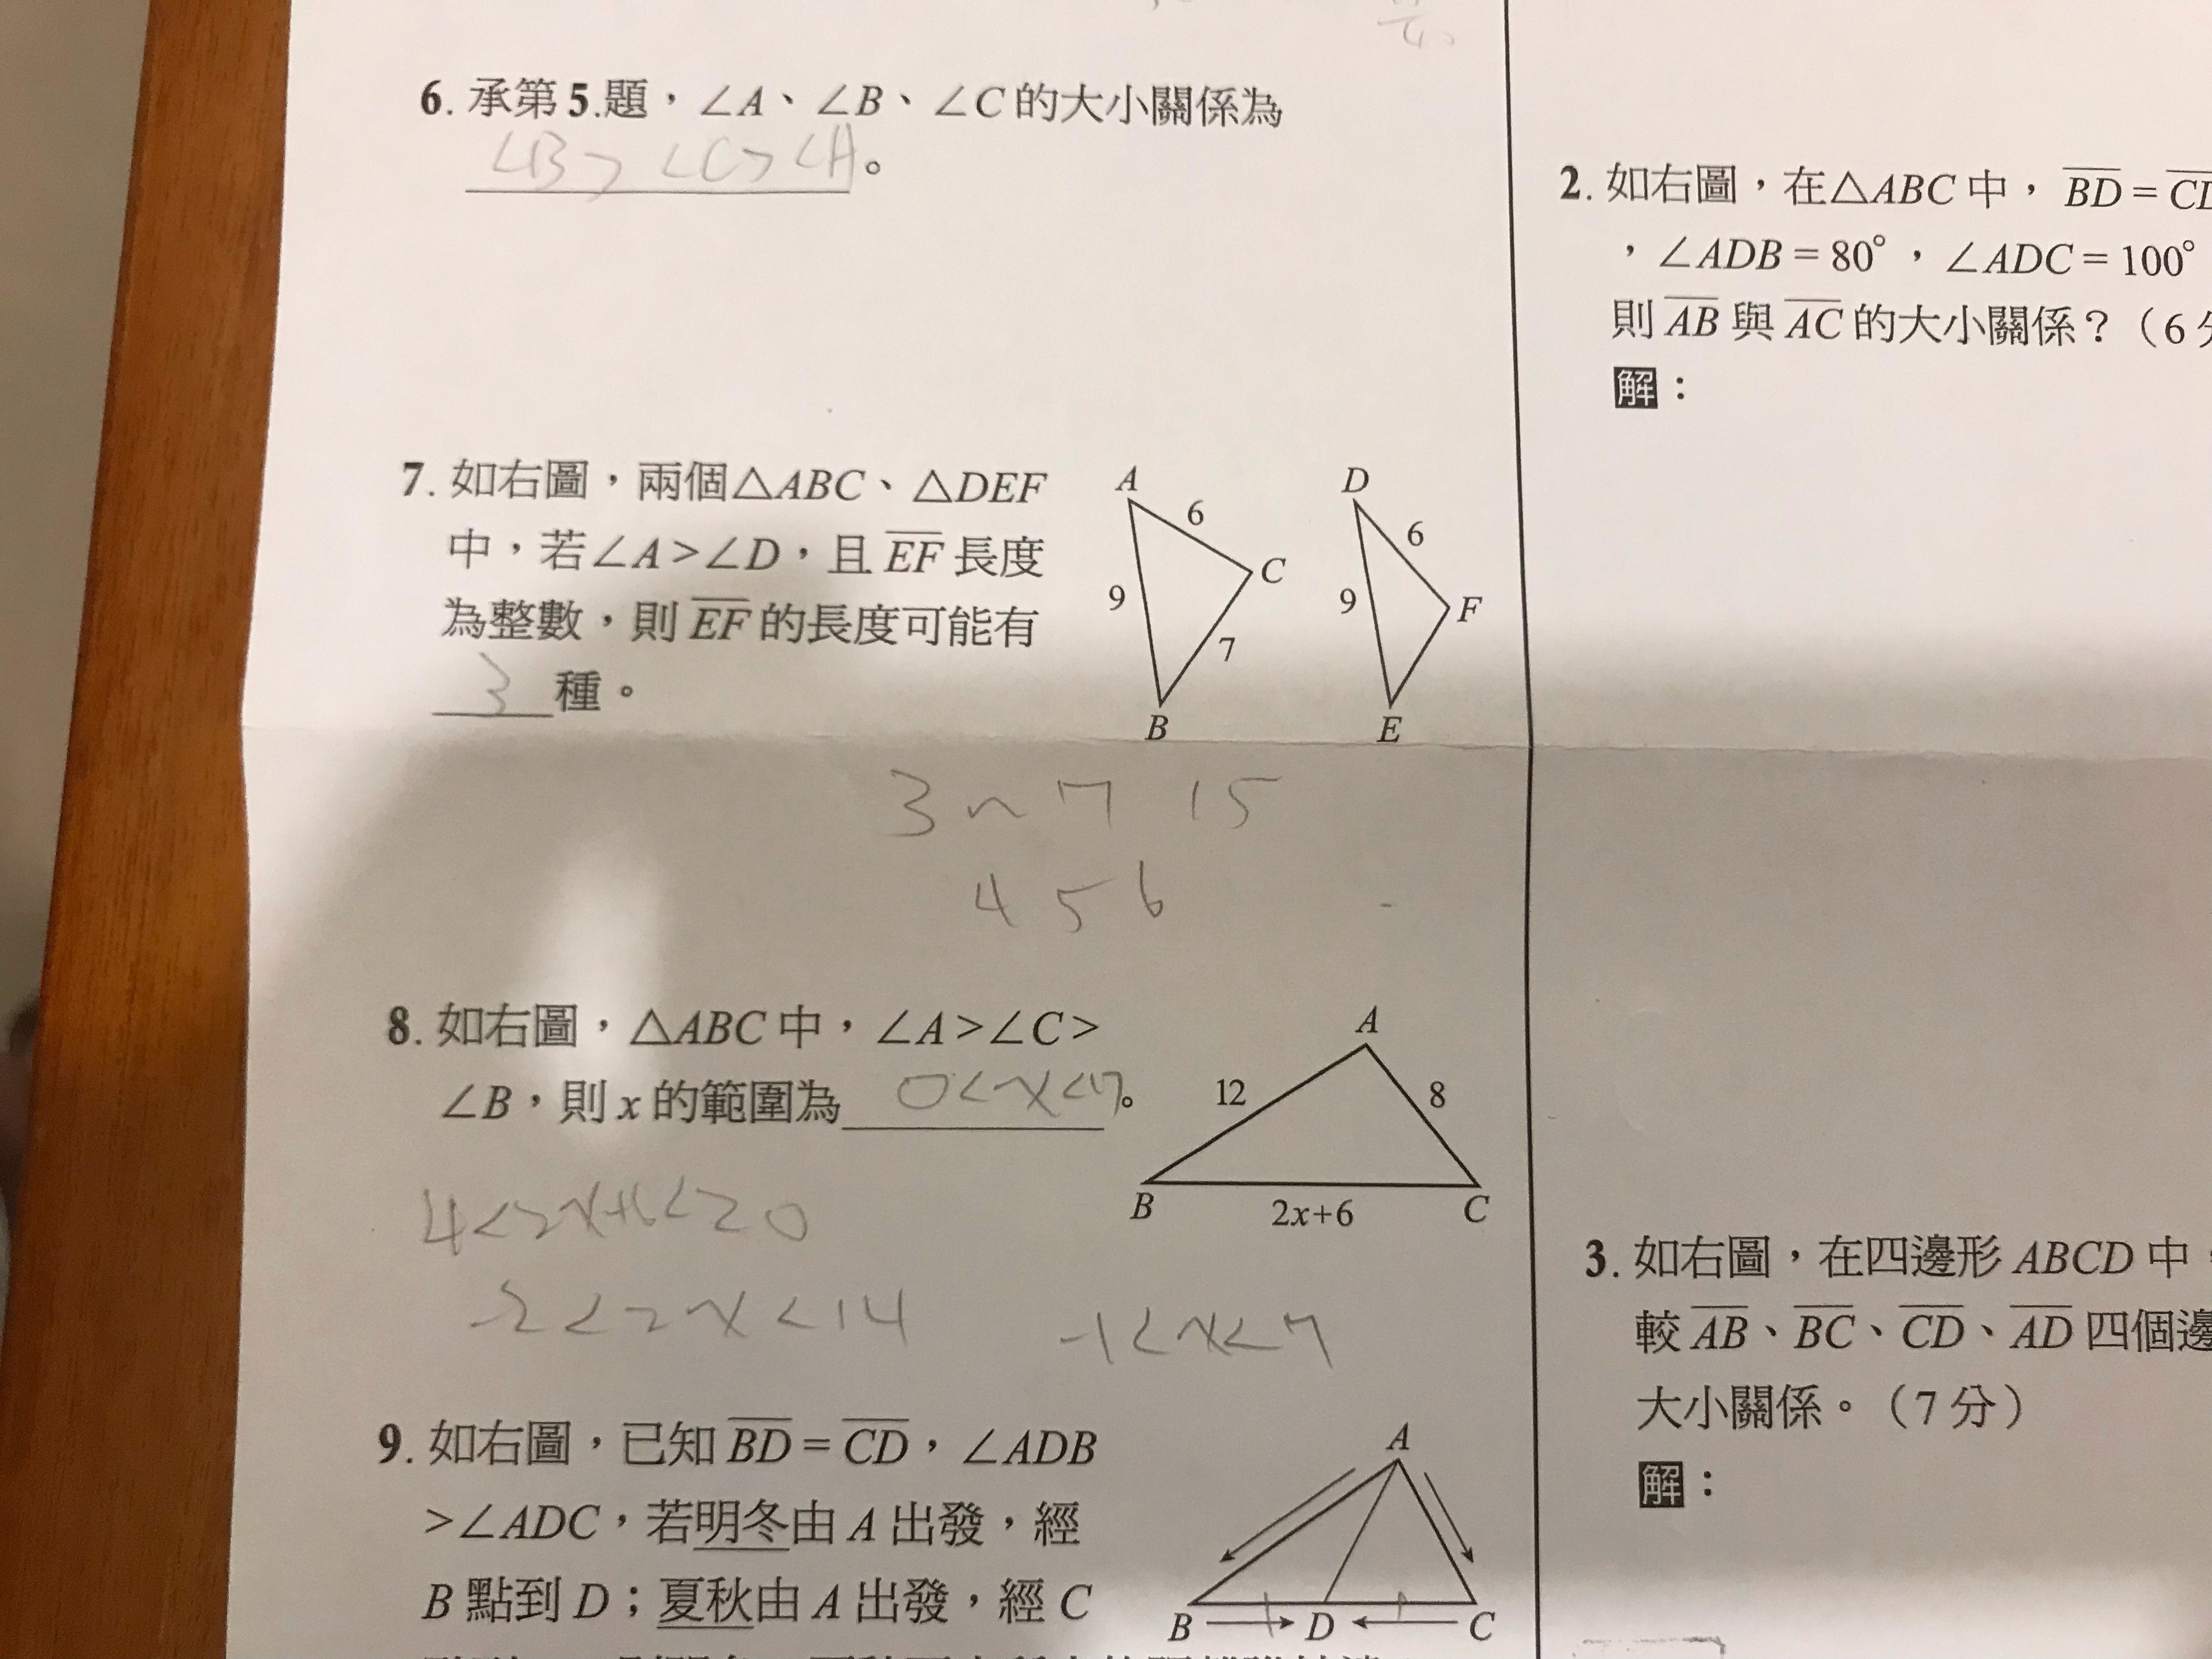 6. 承第5.題，∠A、∠B、∠C的大小關係為
∠B>∠C>∠A。
7. 如右圖，兩個△ABC、△DEF
中，若∠A>∠D，且EF長度
為整數，則EF的長度可能有
3種。
A
6
C
9
7
B
D
6
F
9
E
3~7 15
4 5 6
8. 如右圖，△ABC中，∠A>∠C>
∠B，則x的範圍為 0<x<7。
A
12
8
B
2x+6
C
4<2x+6<20
-2<2x<14
-1<x<7
9. 如右圖，已知BD=CD，∠ADB
>∠ADC，若明冬由A出發，經
B點到D；夏秋由A出發，經C
A
B
D
C
2. 如右圖，在△ABC中，BD=
，∠ADB=80°，∠ADC=100°
則AB與AC的大小關係？（6
解：
3. 如右圖，在四邊形ABCD中
較AB、BC、CD、AD四個邊
大小關係。（7分）
解：